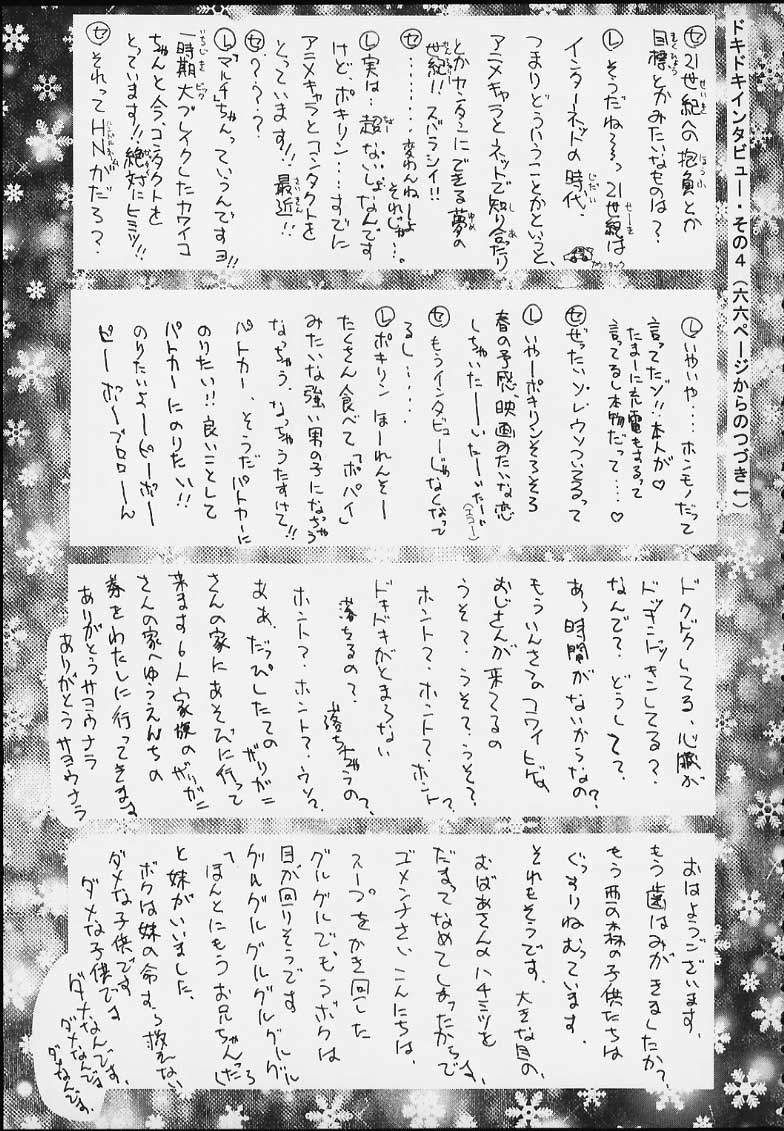 ドキドキインタビュー・その4(六六ページからのつづき↑)
㋝21世紀への抱負とか
目標とかみたいなものは?
㋹そうだね〜〜っ21世紀は
インターネットの時代、
つまりどういうことかというと、
アニメキャラとネットで知り合ったり
とかカンタンにできる夢の
世紀!!ズバラシイ!!
㋝………変わんねーよ
それじゃ…。
㋹実は…超ないしょなんです
けどポキリン…すでに
アニメキャラとコンタクトを
とっています!!最近!!
㋝???
㋹「マルチ」ちゃんっていうんですョ!!
一時期大ブレイクしたカワイコ
ちゃんと今、コンタクトを
とっています!!絶対にヒミツ!!
㋝それってHNがだろ?
㋹いやいや…ホンモノだって
言ってたゾ!!本人が♡
たまーに充電もするって
言ってるし本物だって…♡
㋝ぜったいソレウソついてるって
㋹いやーポキリンそろそろ
春の予感、映画みたいな恋
しちゃいたーいたーいたーい
(エコー)
㋝もうインタビューじゃなくなって
るし……
㋹ポキリン ほーれんそー
たくさん食べて「ポパイ」
みたいな強い男の子になっちゃう
なっちゃう、なっちゃうたすけて!!
パトカー、そうだパトカーに
のりたい!!良いことして
パトカーにのりたい!!
のりたいよーピーポー
ピーポープロローん
ドクドクしてる、心臓が
ドッキンドッキンしてる?
なんで?どうして?
あっ時間がないからなの?
もういんさつのコワイヒゲ
おじさんが来てるの
うそ?うそ?うそ?
ホント?ホント?ホント?
ドキドキがとまらない
落ちるの?落ちちゃうの?
ホント?ホント?ウソ?
ああ、だっぴしたてのザリガニ
さんの家にあそびに行って
来ます6人家族のザリガニ
さんの家へゆうえんちの
券をわたしに行ってきます
ありがとうサヨウナラ
ありがとうサヨウナラ
おはようございます、
もう歯はみがきましたか?
もう西の森の子供たちは
ぐっすりねむっています、
それもそうです、大きな目の、
おばあさんのハチミツを
だまってなめてしまったからです、
ゴメンナさい、こんにちは、
スープをかき回した
グルグルでもうボクは
目が回りそうです
グルグルグルグルグルグル
「ほんとにもうお兄ちゃんったら」
と妹がいいました、
ボクは妹の命すら救えない
ダメな子供です
ダメな子供です
ダメなんです、
ダメなんです、
ダメなんです、